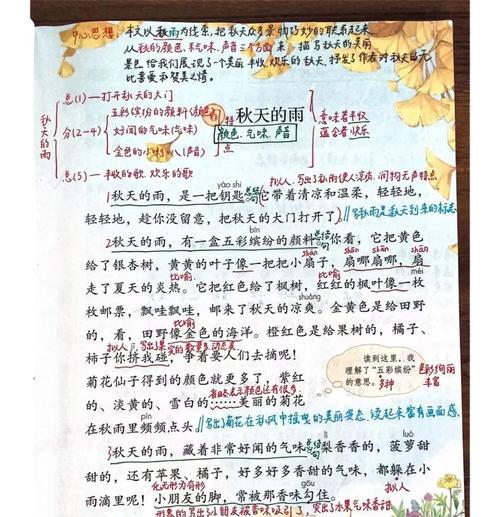 中心思想：本文以秋雨为线索，把秋天众多景物巧妙的联系起来，
从秋的颜色、气味、声音三个方面来，描写秋天的美丽
景色给我们展现了一个美丽、丰收、欢乐的秋天，抒发了作者对秋天的无
比喜爱和赞美之情。
秋天的雨
总(1)—打开秋天的大门
分(2-4)
五彩缤纷的颜料(颜色)
好闻的气味(气味)
金色的小喇叭(声音)
总(5)—丰收的歌 欢乐的歌
秋天的雨
特点
颜色、气味、声音
意味着丰收
蕴含着快乐
yào shi
拟人，写出了秋雨使人凉爽、
1秋天的雨，是一把钥匙。它带着清凉和温柔，轻轻地，
轻轻地，趁你没留意，把秋天的大门打开了。
写秋雨是秋天到来的标志
bīn
2秋天的雨，有一盒五彩缤纷的颜料。你看，它把黄色
总结句
比喻
shàn
shān
shān
给了银杏树，黄黄的叶子像一把把小扇子，扇哪扇哪，扇
走了夏天的炎热。它把红色给了枫树，红红的枫叶像一枚
比喻
méi
枚邮票，飘哇飘哇，邮来了秋天的凉爽。金黄色是给田野
shuǎng
比喻
的，看，田野像金色的海洋。橙红色是给果树的，橘子、
柿子你挤我碰，争着要人们去摘呢！
拟人
菊花仙子得到的颜色就更多了，紫红
省略号表示颜色还有很多
的、淡黄的、雪白的……美丽的菊花
在秋雨里频频点头。
写出了菊花在秋风中摇曳的美丽姿态，读起来富有画面感
读到这里，我
理解了“五彩缤纷”
的意思。
多种
色彩绚丽
丰富
3秋天的雨，藏着非常好闻的气味。梨香香的，菠萝甜
总结句
luó
甜的，还有苹果、橘子，好多好多香甜的气味，都躲在小
duǒ
雨滴里呢！小朋友的脚，常被那香味勾住。
化无形为有形
拟人
形象的写出了小朋友被香味吸引了，突出了水果气味香甜